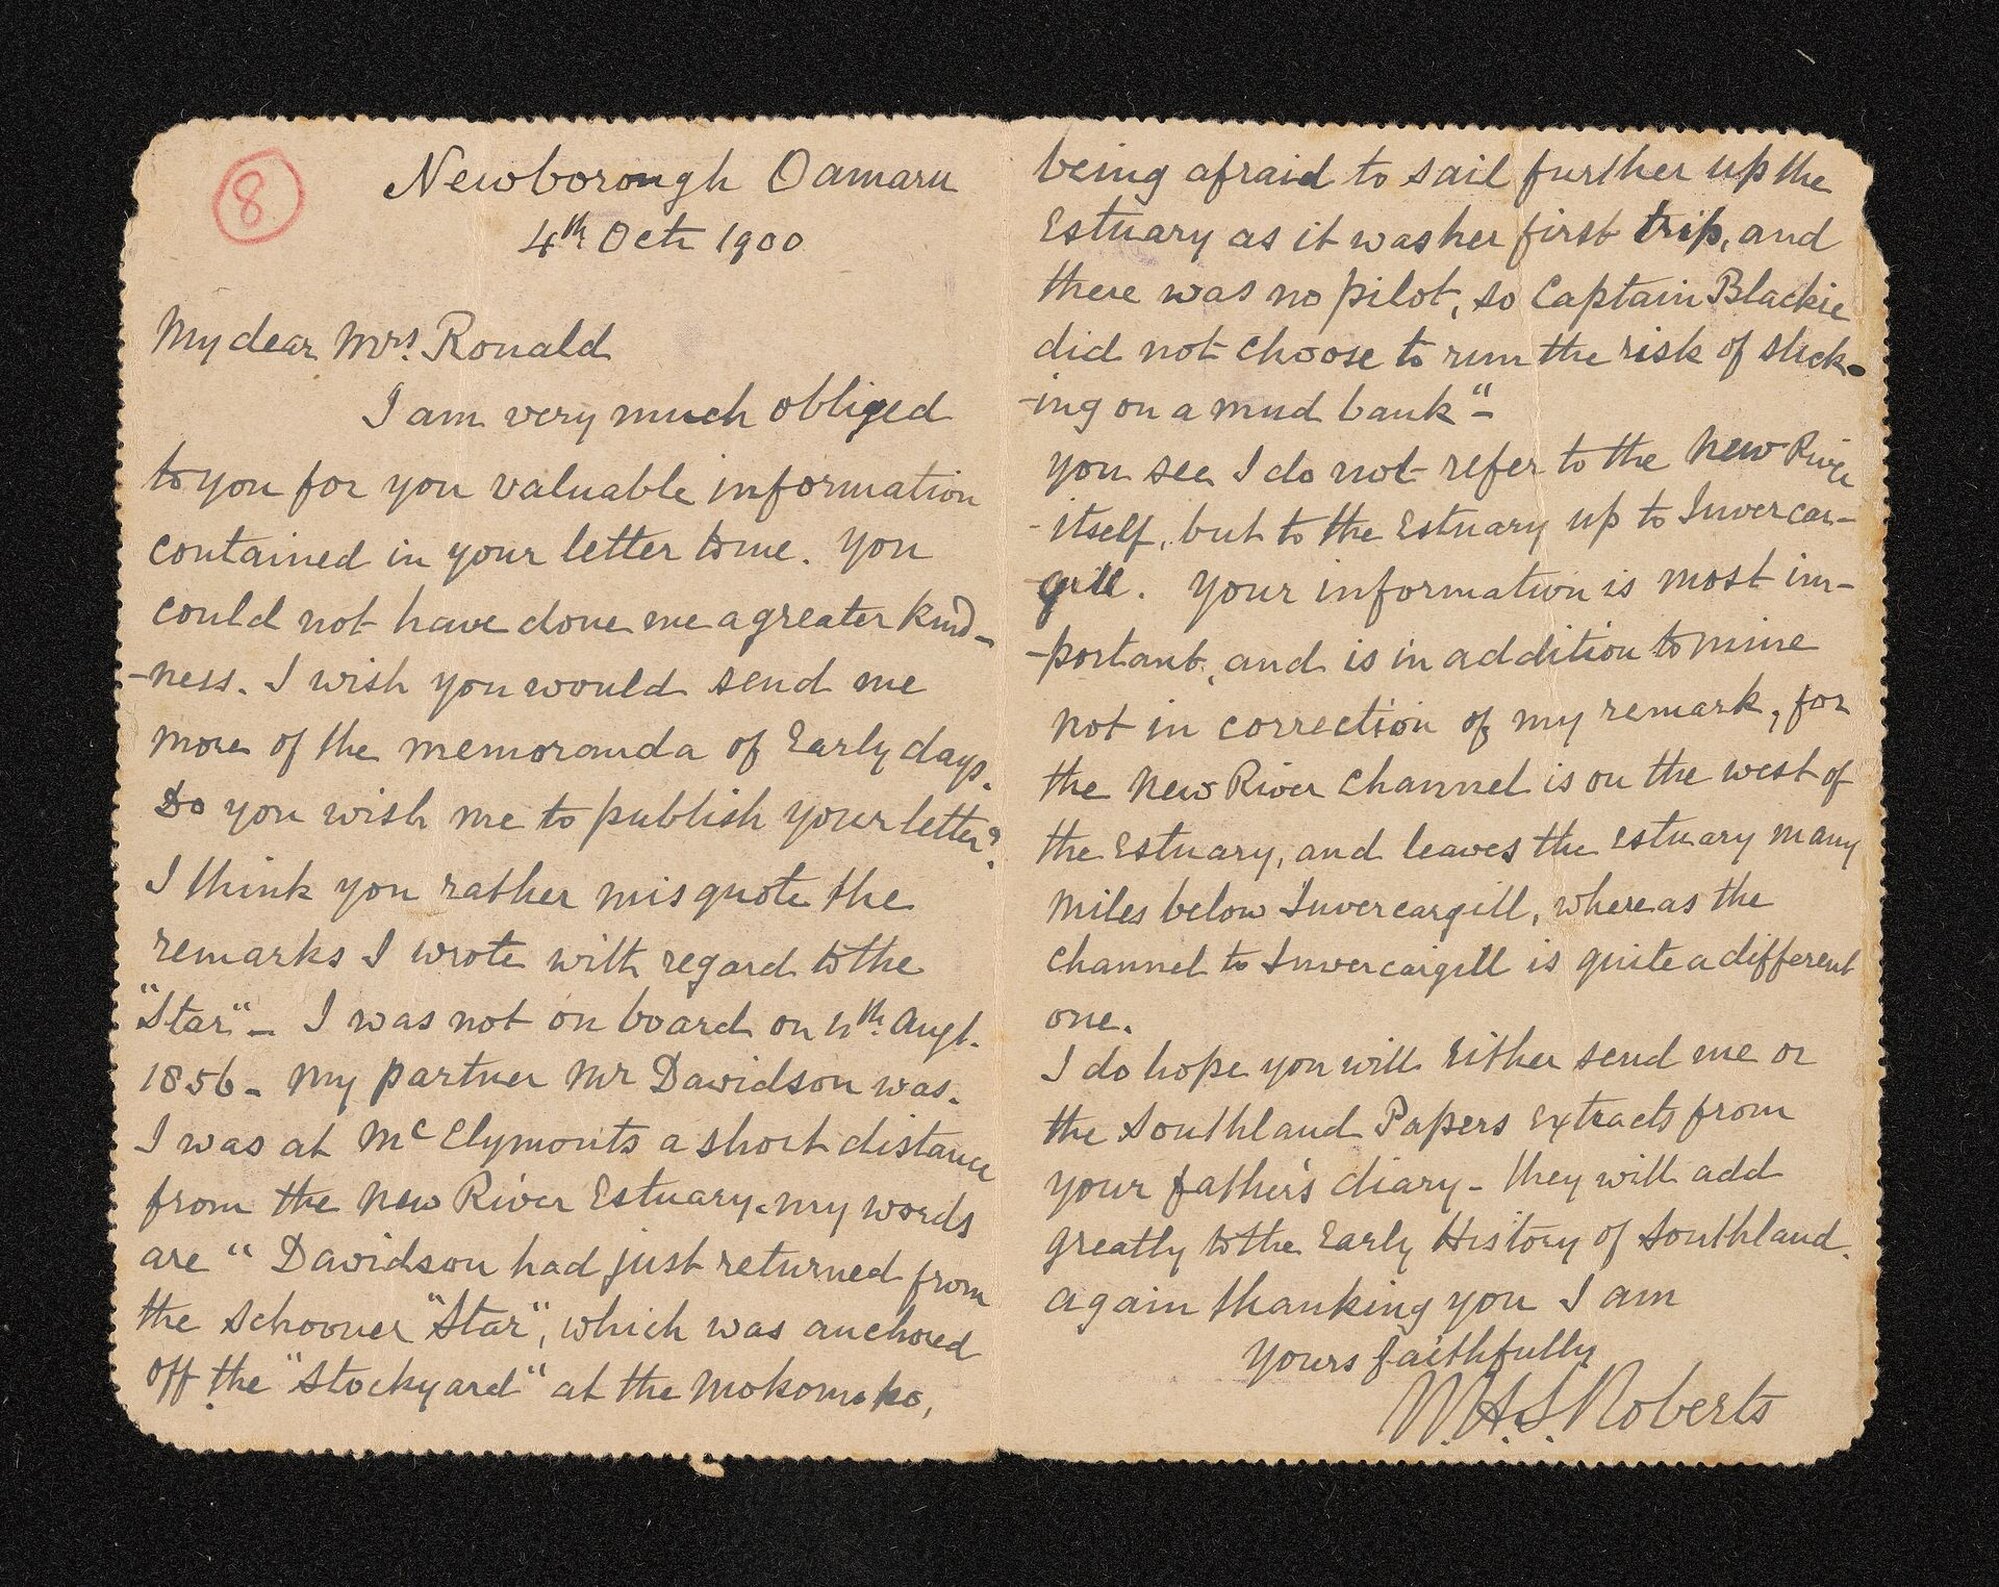 8
Newborough Oamaru
4th Octr 1900
My dear Mrs. Ronald
I am very much obliged
to you for you valuable information
contained in your letter to me. You
could not have done me a greater kind-
-ness. I wish you would send me
more of the memoranda of Early days.
Do you wish me to publish your letter?
I think you rather misquote the
remarks I wrote with regard to the
"Star" – I was not on board on 11th Augt.
1856 – My partner Mr Davidson was.
I was at McClymonts a short distance
from the New River Estuary. My words
are "Davidson had just returned from
the Schooner "Star", which was anchored
off the "Stockyard" at the Mokomoko,
being afraid to sail further up the
Estuary as it was her first trip, and
there was no pilot, so Captain Blackie
did not choose to run the risk of stick-
-ing on a mud bank" –
You see I do not refer to the New River
itself, but to the Estuary up to Invercar-
gill. Your information is most im-
-portant, and is in addition to mine
not in correction of my remark, for
the New River Channel is on the west of
the Estuary, and leaves the Estuary many
miles below Invercargill, whereas the
channel to Invercargill is quite a different
one.
I do hope you will Either send me or
the Southland Papers Extracts from
your father's diary – they will add
greatly to the Early History of Southland.
again thanking you I am
Yours faithfully
W.H.S. Roberts